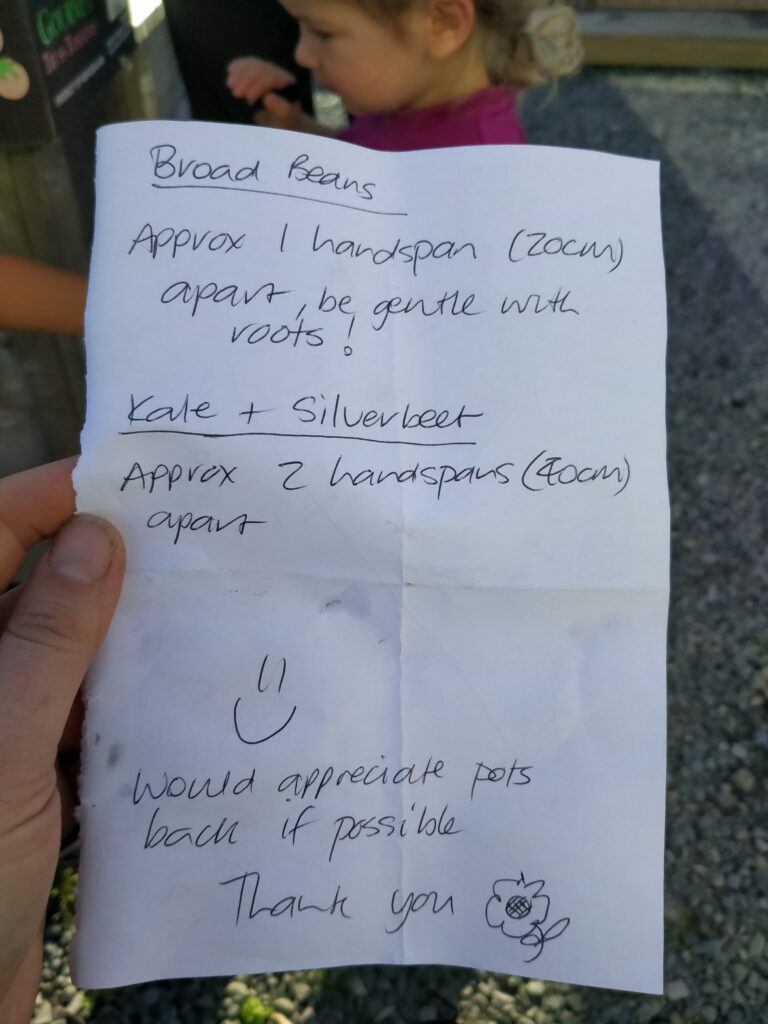 Broad Beans
Approx 1 handspan (20cm)
apart, be gentle with
roots!
Kale + Silverbeet
Approx 2 handspans (40cm)
apart
Would appreciate pots
back if possible
Thank you